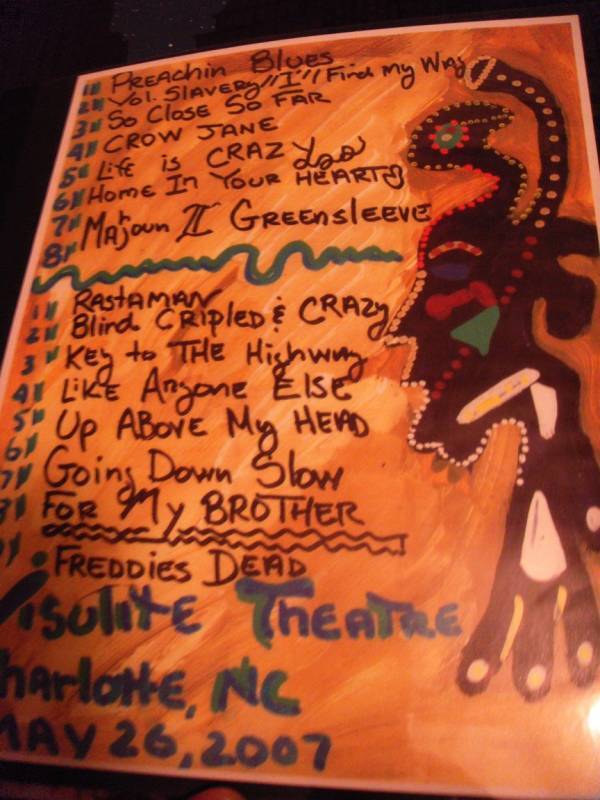 1 Preachin Blues
2 Vol. Slavery // "I" // Find My Way
3 So Close So Far
4 Crow Jane
5 Life is Crazy
6 Home In Your Heart
7 Majoun II Greensleeve
8
1 Rastaman
2 Blind Cripled & Crazy
3 Key to The Highway
4 Like Anyone Else
5 Up Above My Head
6 Going Down Slow
7 For My Brother
8 Freddies Dead
Visulite Theatre
Charlotte, NC
May 26, 2007